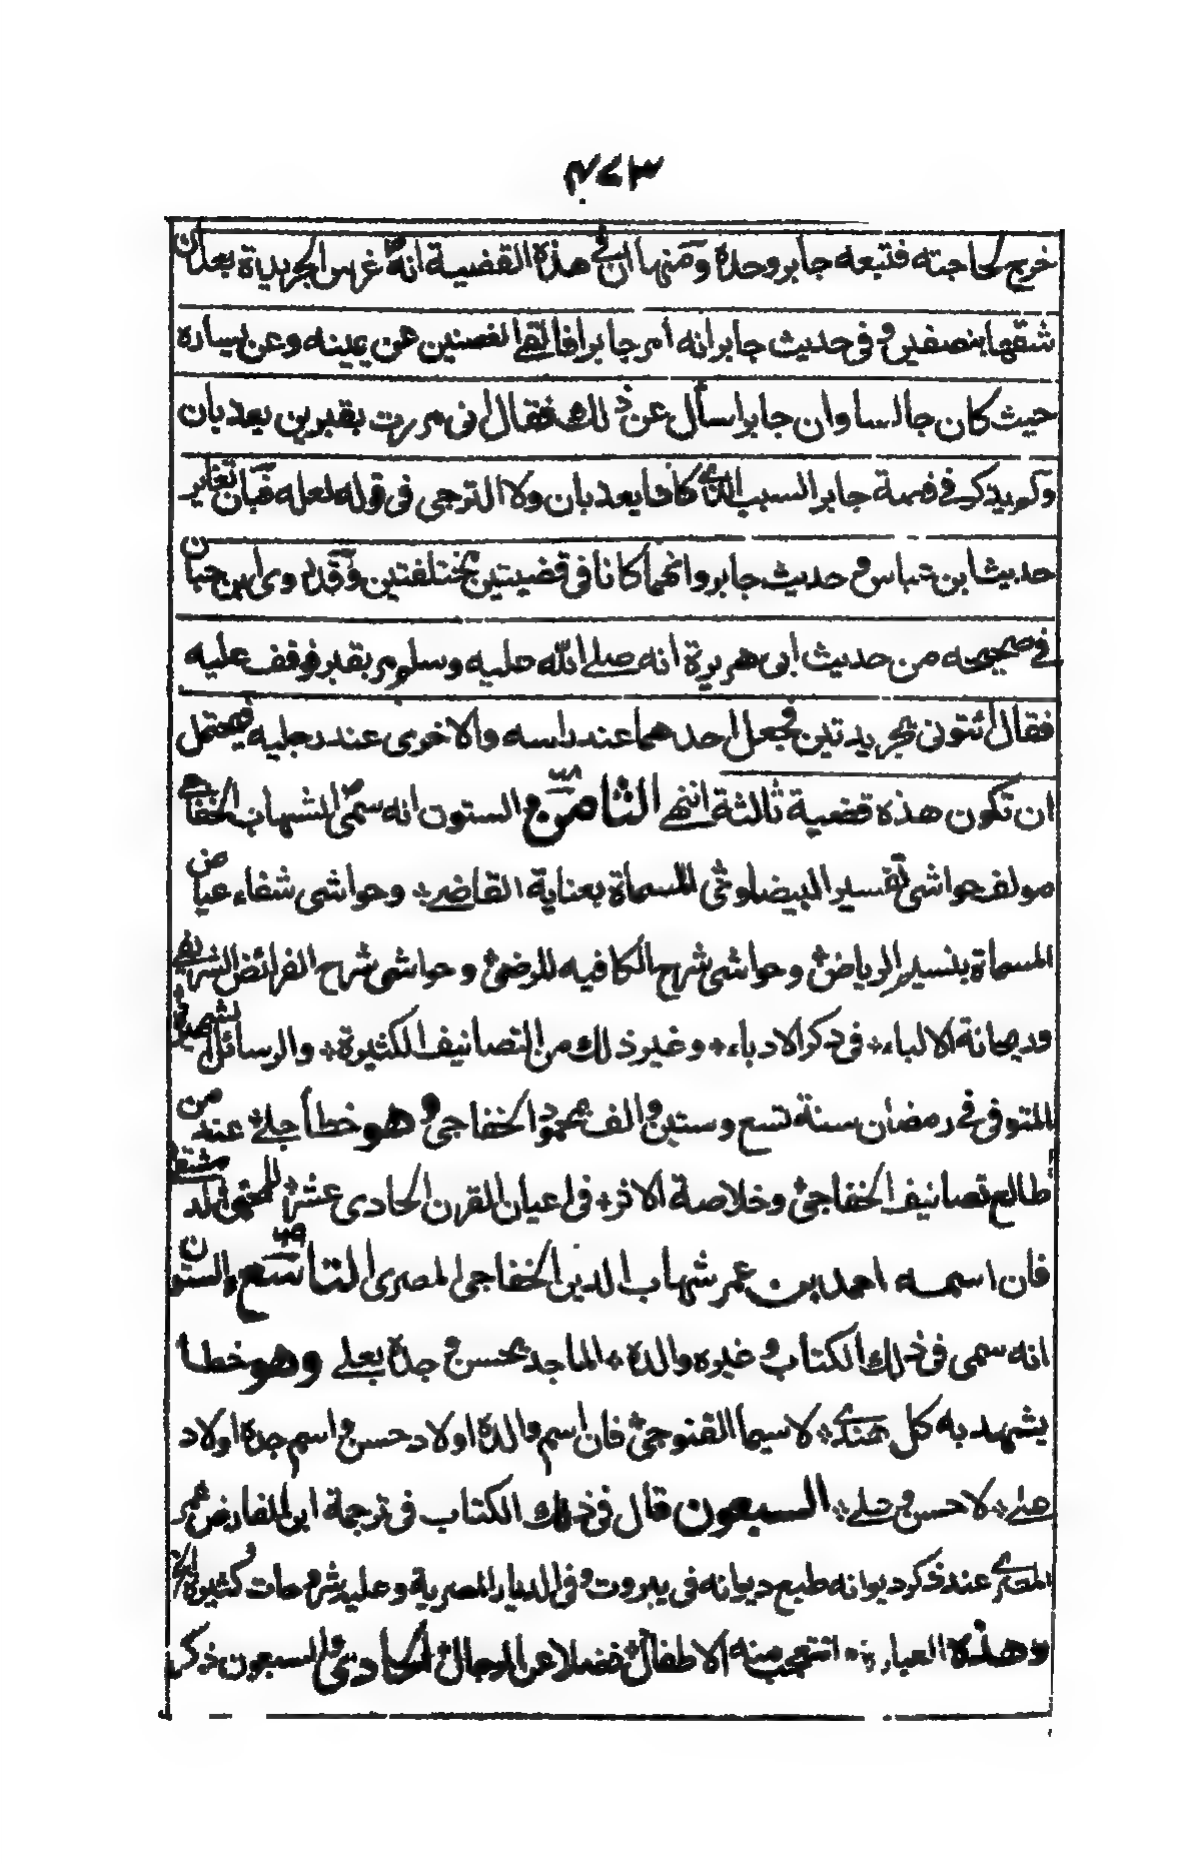 ٣٧٣
خرج لحاجته فتبعه جابر وحده ومنها ان في هذه القضية انه غرس الجريدة بعد ان
شقها بنصفين وفي حديث جابر انه امر جابرا فالقى الغصنين عن يمينه وعن يساره
حيث كان جالسا وان جابرا سأل عن ذلك فقال انى مررت بقبرين يعذبان
ولم يذكر في قصة جابر السبب الذي كانا يعذبان ولا الترجى فى قوله لعله فبان تغاير
حديث ابن عباس وحديث جابر وانهما كانا فى قضيتين مختلفتين وقد روى ابن حبان
في صحيحه من حديث ابى هريرة انه صلى الله عليه وسلم مر بقبر فوقف عليه
فقال ائتونى بجريدتين فجعل احدهما عند راسه والاخرى عند رجليه فيحتمل
ان تكون هذه قضية ثالثة انتهى الثامن والستون انه سمى الشهاب الخفاجي
مولف حواشى تفسير البيضاوى المسماة بعناية القاضى وحواشى شفاء عياض
المسماة بنسيم الرياض وحواشى شرح الكافيه للرضى وحواشى شرح الفرائض الشريفى
وريحانة الالباء فى ذكر الادباء وغير ذلك من التصانيف الكثيرة والرسائل الشهيرة
المتوفى في رمضان سنة تسع وستين والف بمحمود الخفاجى وهو خطأ جلى عند من
طالع تصانيف الخفاجى وخلاصة الاثر فى اعيان القرن الحادى عشر للمحبى الدمشقى
فان اسمه احمد بن عمر شهاب الدين الخفاجى المصرى التاسع والستون
انه سمى فى ذلك الكتاب وغيره والده الماجد بحسن وجده بعلى وهو خطأ
يشهد به كل هندي لا سيما القنوجى فان اسم والده اولاد حسن واسم جده اولاد
على لا حسن وعلى السبعون قال فى ذلك الكتاب فى ترجمة ابن الفارض عمر
المصري عند ذكر ديوانه طبع ديوانه فى بيروت وفى الديار المصرية وعليه شروحات كثيرة الخ
وهذه العبارة انتعجب منه الاطفال فضلا عن الرجال الحادى والسبعون ذكر